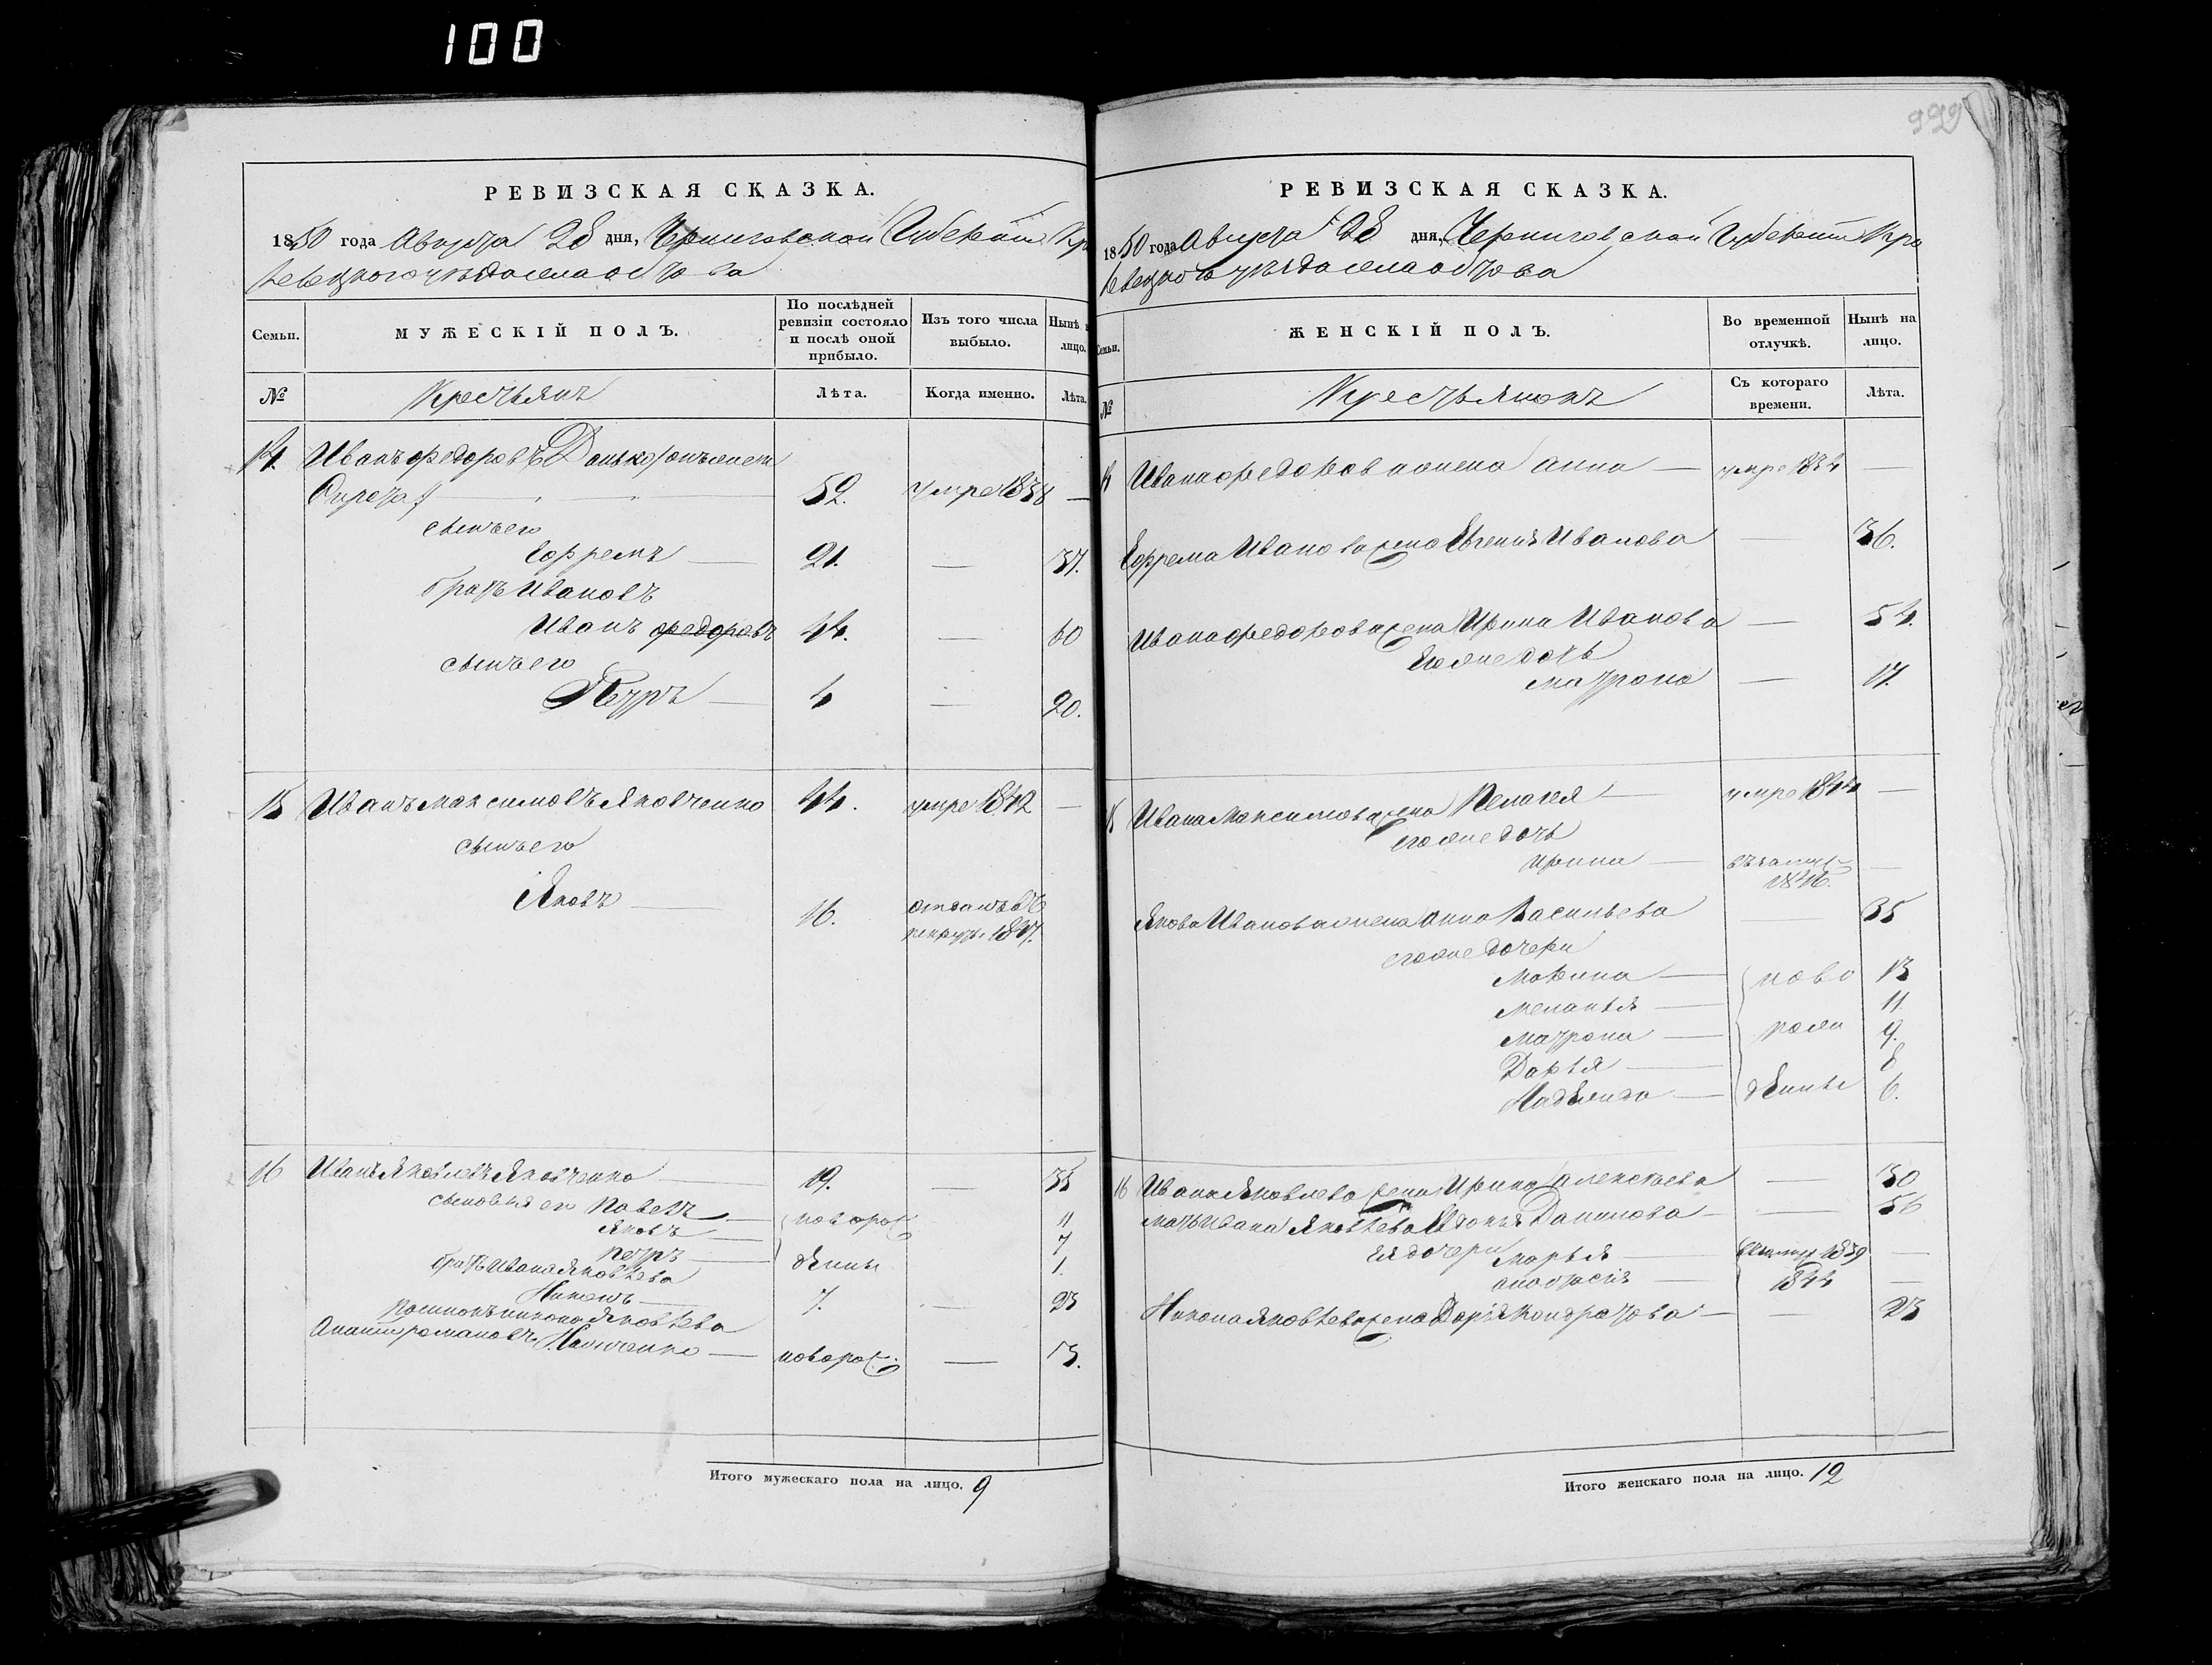 100
РЕВИЗСКАЯ СКАЗКА.
1850 года Августа 28 дня, Черниговской Губернии
уѣзда села
Семьи.
МУЖЕСКІЙ ПОЛЪ.
По послѣдней ревизіи состояло и послѣ оной прибыло.
Изъ того числа выбыло.
Нынѣ
лицо.
№
Крестьянъ
Лѣта.
Когда именно.
Лѣта.
14. Иванъ Федоровъ
52. умре 1838 —
сынъ его
Ефремъ — 21. — 37.
братъ Ивановъ
Иванъ Федоровъ 44. — 60
сынъ его
Петръ — 4 — 20.
15 Иванъ Максимовъ Яковченко 44. умре 1842 —
сынъ его
Яковъ — 16. отданъ въ рекруты 1847.
16 Иванъ Яковлевъ Яковченко — 19. — 35
сыновья его Павелъ — новорож 11
Яковъ — 7
Петръ — денные 1.
братъ Ивана Яковлева
Никонъ — 7. — 23
Никона Яковлева
романовъ — новорож: — 13.
Итого мужескаго пола на лицо. 9
999
РЕВИЗСКАЯ СКАЗКА.
1850 года Августа 28 дня, Черниговской Губернии Кро
левецкого уѣзда села
Семьи.
ЖЕНСКІЙ ПОЛЪ.
Во временной отлучкѣ.
Нынѣ на лицо.
№
Крестьянокъ
Съ котораго времени.
Лѣта.
14 Ивана Федорова жена Анна — умре —
Ефрема Иванова жена Евгения Иванова — 36.
Ивана Федорова жена Ирина Иванова — 54.
Его же дочь
Матрона — 17.
15 Ивана Максимова жена Пелагея — умре 1844 —
его же дочь
Ирина — 1846. —
Якова Иванова жена Анна Васильева — 35
его же дочери
Марина — ново 13
Меланья — 11
Матрона — рож 9.
Дарья — 8
Надежда — денные 6.
16 Ивана Яковлева жена Ирина Алексѣева — 30
мать Ивана Яковлева Евдокия Данилова — 56
ея дочери Марья — 1839 —
Анастасия — 1844 —
Никона Яковлева жена Дарія Кондратова — 23
Итого женскаго пола на лицо. 12